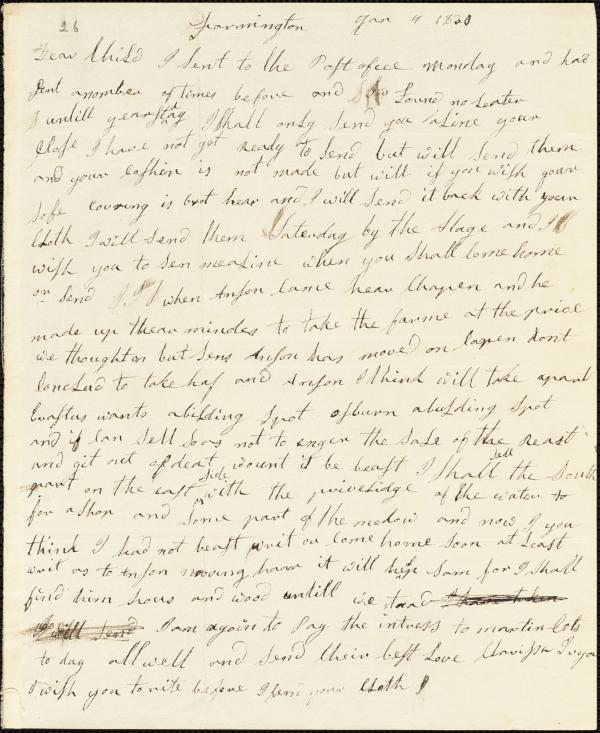 26
Farmington Jan 9 1830
Dear Child I sent to the Post ofice Monday and had
sent a nomber of times before and found no Leater
untill yearstday I Shall only send you a Line your
Close I have not got ready to send but will send them
and your is not made but will if you wish your
Sofe covring is brot hear and I will send it back with your
Cloth I will send them Saterday by the Stage and I
wish you to sen me a Line when you shall Come home
or Send when Anson Came hear Chapen and he
made up thear mindes to take the farme at the price
we thought on but sens Anson has moved on Capen dont
Conclud to take haf and Anson I think will take apart
Erastus wants a bilding Spot osburn a bulding Spot
and if I can sell so as not to enger the Sale of the Reast
and git out of deat wount it be beast I shall sell the South
part on the east Side with the priveledge of the water to
for a Shop and Some part of the medow and now if you
think I had not beast writ or Come home soon at Least
writ as to Anson moving hear it will help Som for I shall
find him hous and wood untill we
I will send I am again to Pay the intress to martin Cols
to day all well and send their best Love Clarissa
I wish you to rite before I send your Cloth